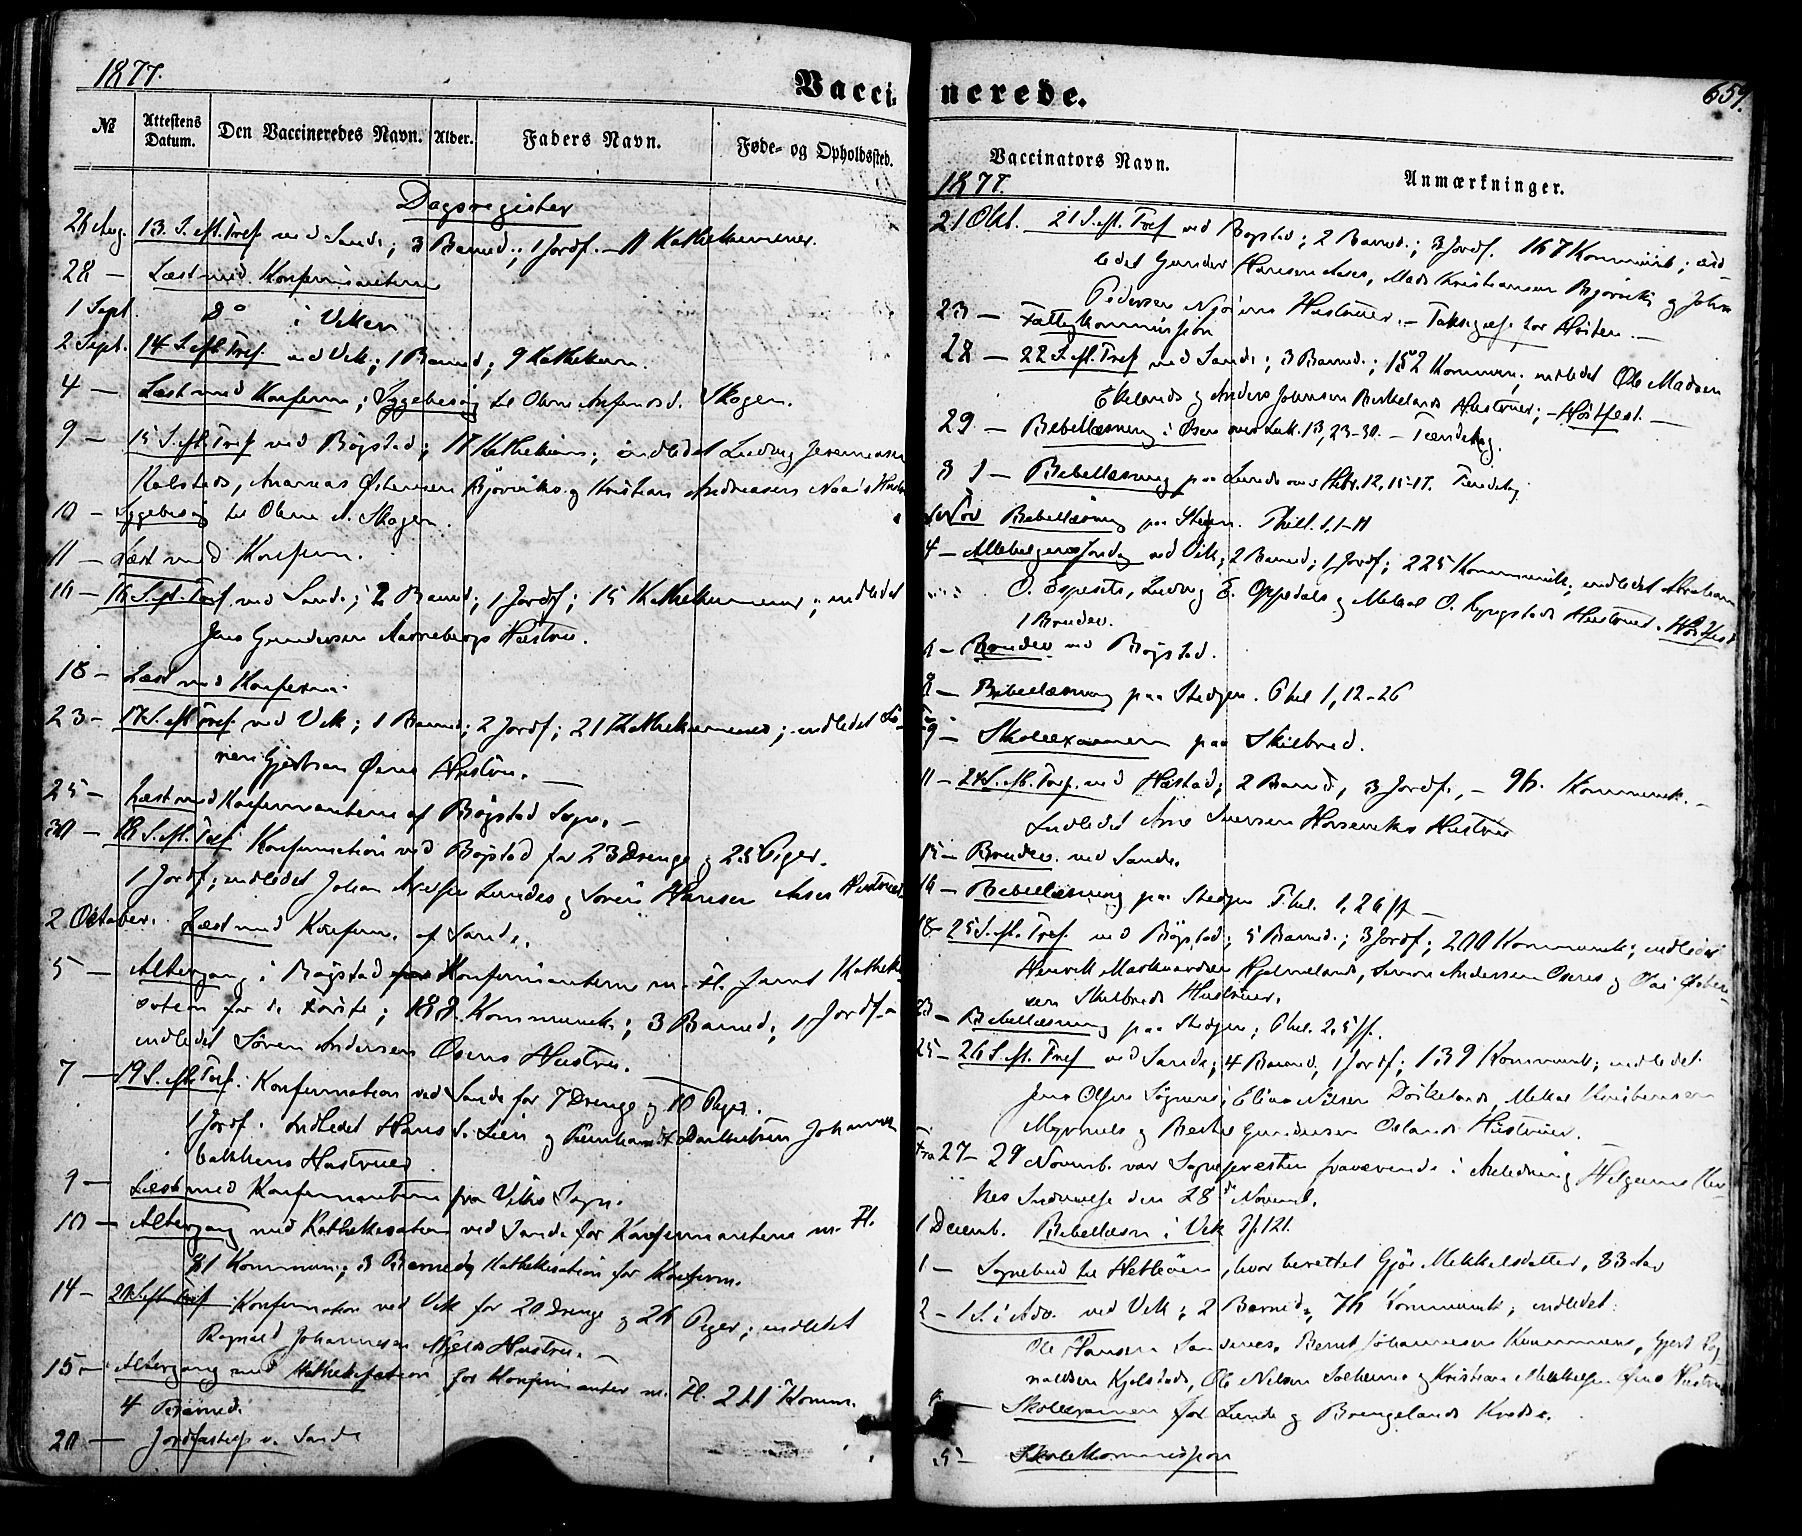 1877.
Vacci-
№ Attestens Datum. Den Vaccineredes Navn. Alder. Faders Navn. Føde- og Opholdssted.
Dagsregister
26 Aug. 13. S. eft. Tref. ved Sande; 3 Barned.; 1 Jordf. – 11 Kathekumener.
28 – Læst med Konfirmanterne
1 Sept. Do i Viken
2 Sept. 14 S. eft. Tref. ved Vik; 1 Barned; 9 Kathekum.
4 – Læst med Konfirm; Sygebesøg til Olene Skogen.
9 – 15 S. eft. Tref. ved Bøgstad; 17 Kathekum.; indledet Ludvig Jeremiasen
Rolstads, Ananias Østensen Bjørviks og Kristian Andreasens
10 – Sygebesøg til Olene A. Skogen.
11 – Læst med Konfirm.
16 – 16 S. eft. Tref. ved Sande; 2 Barned; 1 Jordf; 15 Kathekumener; indledet
Jens Gundersen Aarnebergs Hustru.
18 – Læst med Konfirm.
23 – 17 S. eft. Tref. ved Vik; 1 Barned; 2 Jordf; 21 Kathekumener; indledet Sø-
ren Gjertsen Øens Hustru. –
25 – Læst med Konfirmanterne af Bøgstad Sogn. –
30 – 18 S. eft. Tref. Konfirmation ved Bøgstad for 23 Drenge og 25 Piger.
1 Jordf; indledet Johan Lundes og Søren Hansen Aases Hustruer
2 October. Læst med Konfirm. af Sande.
5 – Altergang i Bøgstad for Konfirmanterne m. Fl. samt Katheki-
sation for de første; 188 Kommunik; 3 Barned; 1 Jordf. –
indledet Søren Andersen Osens Hustru.
7 – 19 S. eft. Tref. Konfirmation ved Sande for 7 Drenge og 10 Piger.
1 Jordf. Indledet Hans S. Lien og Johannes
bakkens Hustruer
9 – Læst med Konfirmanterne fra Viks Sogn.
10 – Altergang med Kathekisation ved Sande for Konfirmanterne m. Fl.
81 Kommun; 3 Barned; Kathekisation for Konfirm.
14 – 20 S. eft. Tref. Konfirmation ved Vik for 20 Drenge og 26 Piger; indledet
Ragnald Johannesen Hustru. –
15 – Altergang med Kathekisation for Konfirmanter m. Fl. 211 Komm.
4 Barned.
20 – Jordfæstelse v. Sande
nerede.
659.
Vaccinators Navn. Anmærkninger.
1877.
21 Okt. 21 S. eft. Tref. ved Bøgstad; 2 Barned.; 3 Jordf. 167 Kommunik; ind-
ledet Gunder Hansen Aases, Mads Kristiansen Bjørviks og Johan
Pedersen Hustruer. – Taksigelse for Høsten. –
23 – Fattigkommission
28 – 22 S. eft. Tref. ved Sande; 3 Barned.; 152 Kommun.; indledet Ole Madsen
Ekelands og Anders Johnsen Birkelands Hustruer; – Høstfest. –
29 – Bibellæsning i Osen over Luk. 13, 23–30. – Tiendetag.
31 – Bibellæsning paa Lunde over Hebr. 12, 15–17. Tiendetag
Nov Bibellæsning paa Stedjen. Phil. 1, 1–11
4 – Allehelgens Søndag ved Vik; 2 Barned; 1 Jordf; 225 Kommunik; indledet Abraham
O. Espesets, Ludvig E. Oppedals og Mekal O. Hustruer. Høstfest
1 Brudev.
6 – Brudev. ved Bøgstad.
8 – Bibellæsning paa Stedjen. Phil 1, 12–26
9 – Skoleexamen paa Skilbred.
11 – 24 S. eft. Tref. ved Hæstad; 2 Barned, 3 Jordf., – 96 Kommunik. –
Indledet Arne Iversen Horseviks Hustru
15 – Brudev. ved Sande.
16 – Bibellæsning paa Stedjen Phil. 1, 26 ff –
18 – 25 S. eft. Tref. ved Bøgstad; 5 Barned.; 3 Jordf; 200 Kommunik; indledet
Henrik Markvardsen Hjelmelands, Simon Andersen Osens og Ole Østen-
sen Skilbreds Hustruer.
23 – Bibellæsning paa Stedjen; Phil. 2, 5 ff.
25 – 26 S. eft. Tref. ved Sande; 4 Barned, 1 Jordf; 139 Kommunik; indledet
Jens Olsen Sögnens, Elias Nilsen Birkelands, Mekal Kristensen
Myrmels og Berthe Gundersen Oslands Hustruer.
Fra 27 – 29 Novemb. var Sognepræsten fraværende i Anledning Helgums Kir-
kes Indvielse den 28de Novemb.
1 Decemb. Bibellæsn i Vik Ps 121.
1 – Sognebud til Hetleøen, hvor berettet Gjør. Mikkelsdatter, 83 Aar
2 – 1 S. i Adv. ved Vik; 2 Barned; 76 Kommunik; indledet:
Ole Hansen Sandnes, Bernt Johannesen, Gjert Rag-
naldsen Kjelstads, Ole Nilsen Solheims og Kristian Mikkelsen Øens Hustruer
Skoleexamen for Lunde og Brengelands Kreds.
5 – Skolekommission